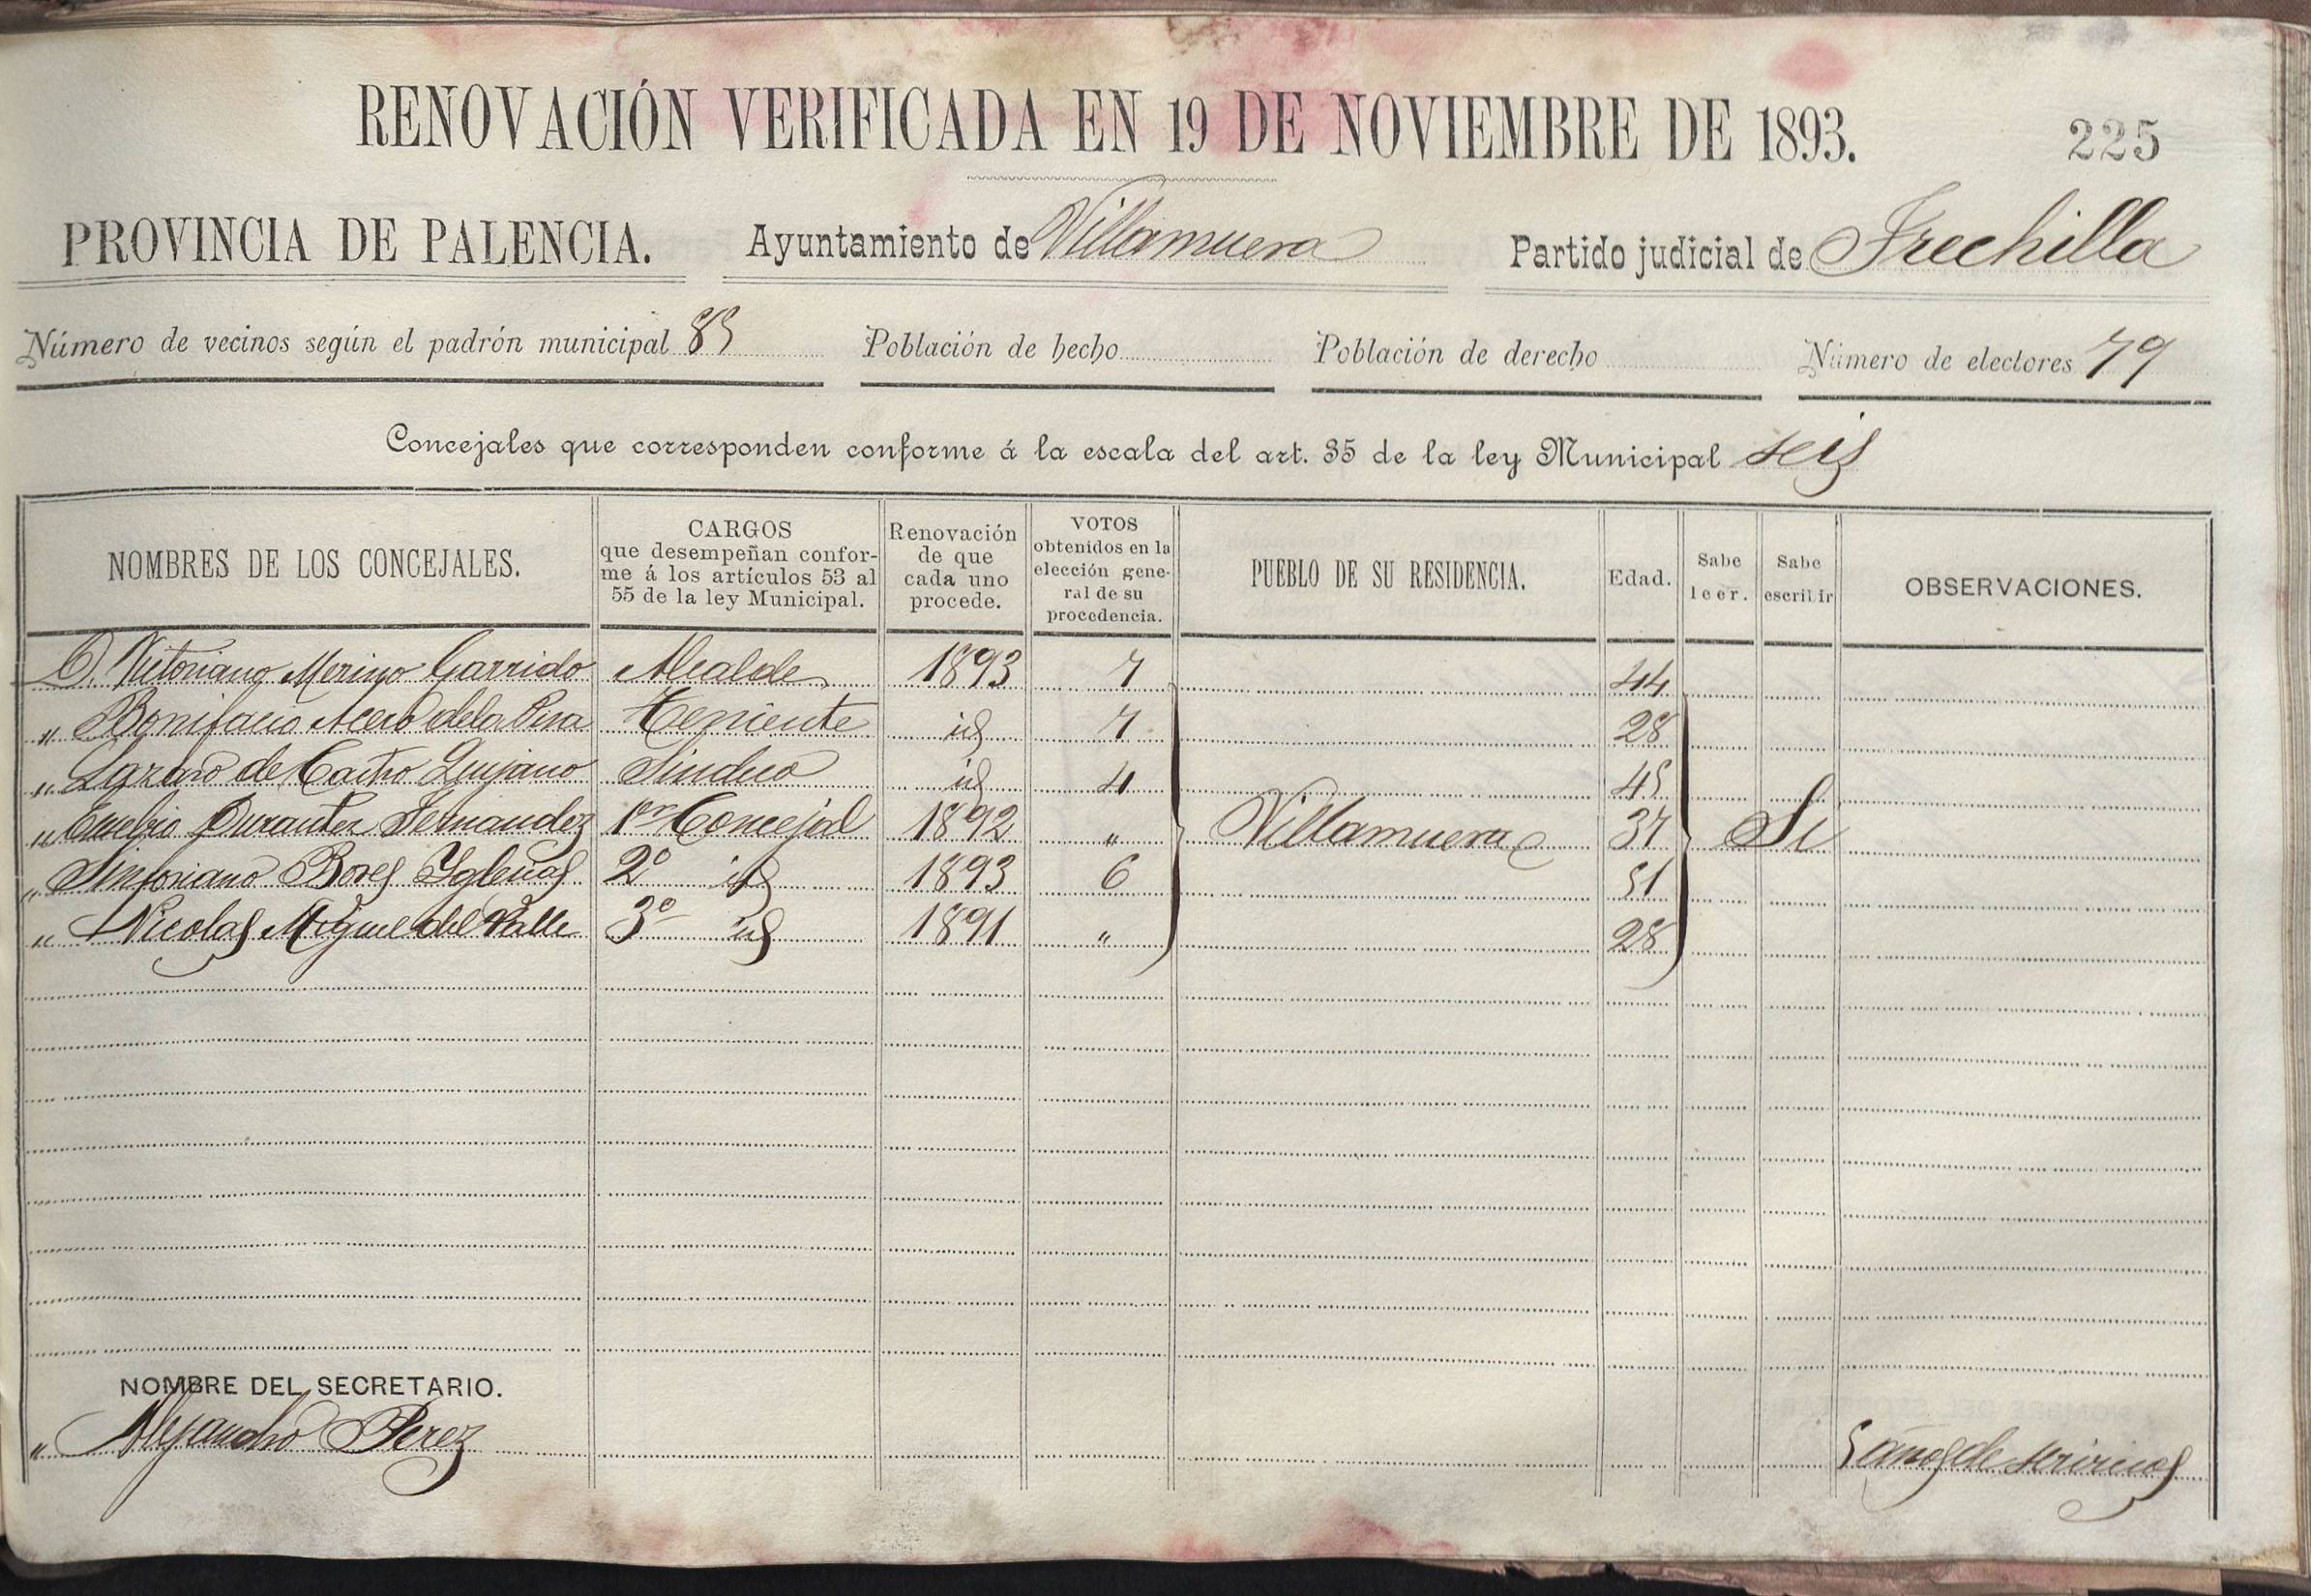 RENOVACIÓN VERIFICADA EN 19 DE NOVIEMBRE DE 1893.
225
PROVINCIA DE PALENCIA. Ayuntamiento de Villamuera Partido judicial de Frechilla
Número de vecinos según el padrón municipal 85 Población de hecho Población de derecho Número de electores 79
Concejales que corresponden conforme á la escala del art. 35 de la ley Municipal seis
NOMBRES DE LOS CONCEJALES.
CARGOS
que desempeñan confor-
me á los artículos 53 al
55 de la ley Municipal.
Renovación
de que
cada uno
procede.
VOTOS
obtenidos en la
elección gene-
ral de su
procedencia.
PUEBLO DE SU RESIDENCIA.
Edad.
Sabe
leer.
Sabe
escribir
OBSERVACIONES.
D. Victoriano Merino Garrido Alcalde 1893 7 44
„ Bonifacio Acero de la Pisa Teniente id 7 28
„ Lazaro de Castro Quijano Sindico id 4 45
„ Eusebio Durantez Fernandez 1er Concejal 1892 „ Villamuera 37 Si
„ Sinforiano Bores Yglesias 2º id 1893 6 51
„ Nicolas Miguel del Valle 3º id 1891 „ 28
NOMBRE DEL SECRETARIO.
„ Alejandro Perez 5 años de servicios